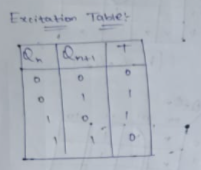 Excitation Table:-
Qn Qn+1 T
0 0 0
0 1 1
1 0 1
1 1 0